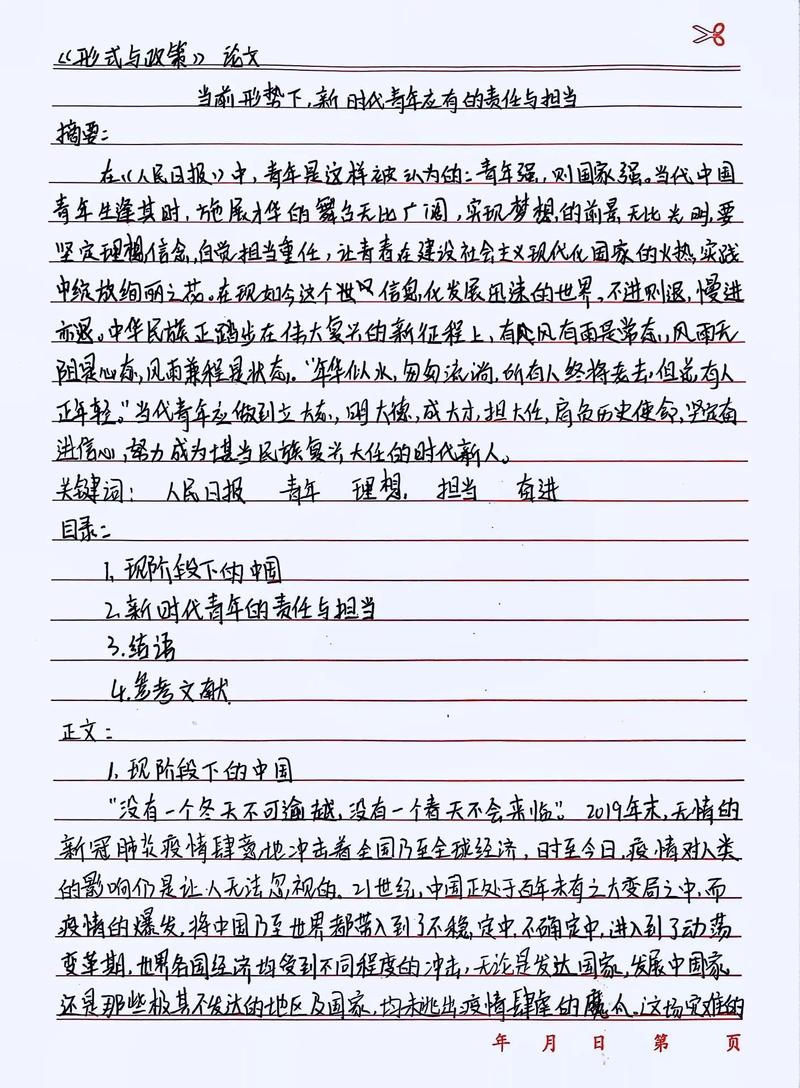 《形式与政策》论文
当前形势下,新时代青年应有的责任与担当
摘要:
在《人民日报》中,青年是这样被认为的:青年强,则国家强。当代中国
青年生逢其时,施展才华的舞台无比广阔,实现梦想的前景无比光明,要
坚定理想信念,自觉担当重任,让青春在建设社会主义现代化国家的火热实践
中绽放绚丽之花。在现如今这个世 信息化发展迅速的世界。不进则退,慢进
亦退。中华民族正踏步在伟大复兴的新征程上,有风有雨是常态,风雨无
阻是心态,风雨兼程是状态。"年华似水,匆匆流淌,所有人终将老去,但总有人
正年轻。"当代青年应做到立大志,明大德,成大才,担大任,肩负历史使命,坚定奋
进信心,努力成为堪当民族复兴大任的时代新人。
关键词: 人民日报 青年 理想 担当 奋进
目录:
1.现阶段下的中国
2.新时代青年的责任与担当
3.结语
4.参考文献
正文:
1.现阶段下的中国
"没有一个冬天不可逾越,没有一个春天不会来临"。2019年末,无情的
新冠肺炎疫情肆离地冲击着全国乃至全球经济,时至今日,疫情对人类
的影响仍是让人无法忽视的。21世纪,中国正处于百年未有之大变局之中,而
疫情的爆发,将中国乃至世界都带入到了不稳定中,不确定中,进入到了动荡
变革期,世界各国经济均受到不同程度的冲击,无论是发达国家,发展中国家
还是那些极其不发达的地区及国家,均未逃出疫情肆虐的魔爪。这场灾难的
年 月 日 第 页